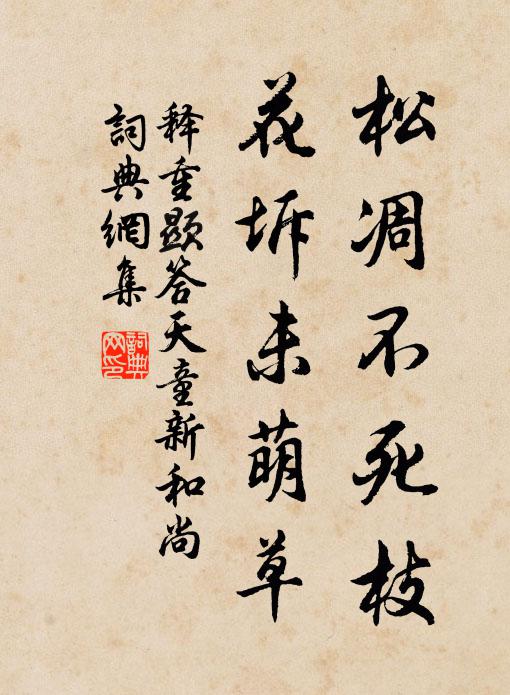 松凋不死枝
花坼未萌草
释重顯答天童新和尚
詞典網集
詞典網印